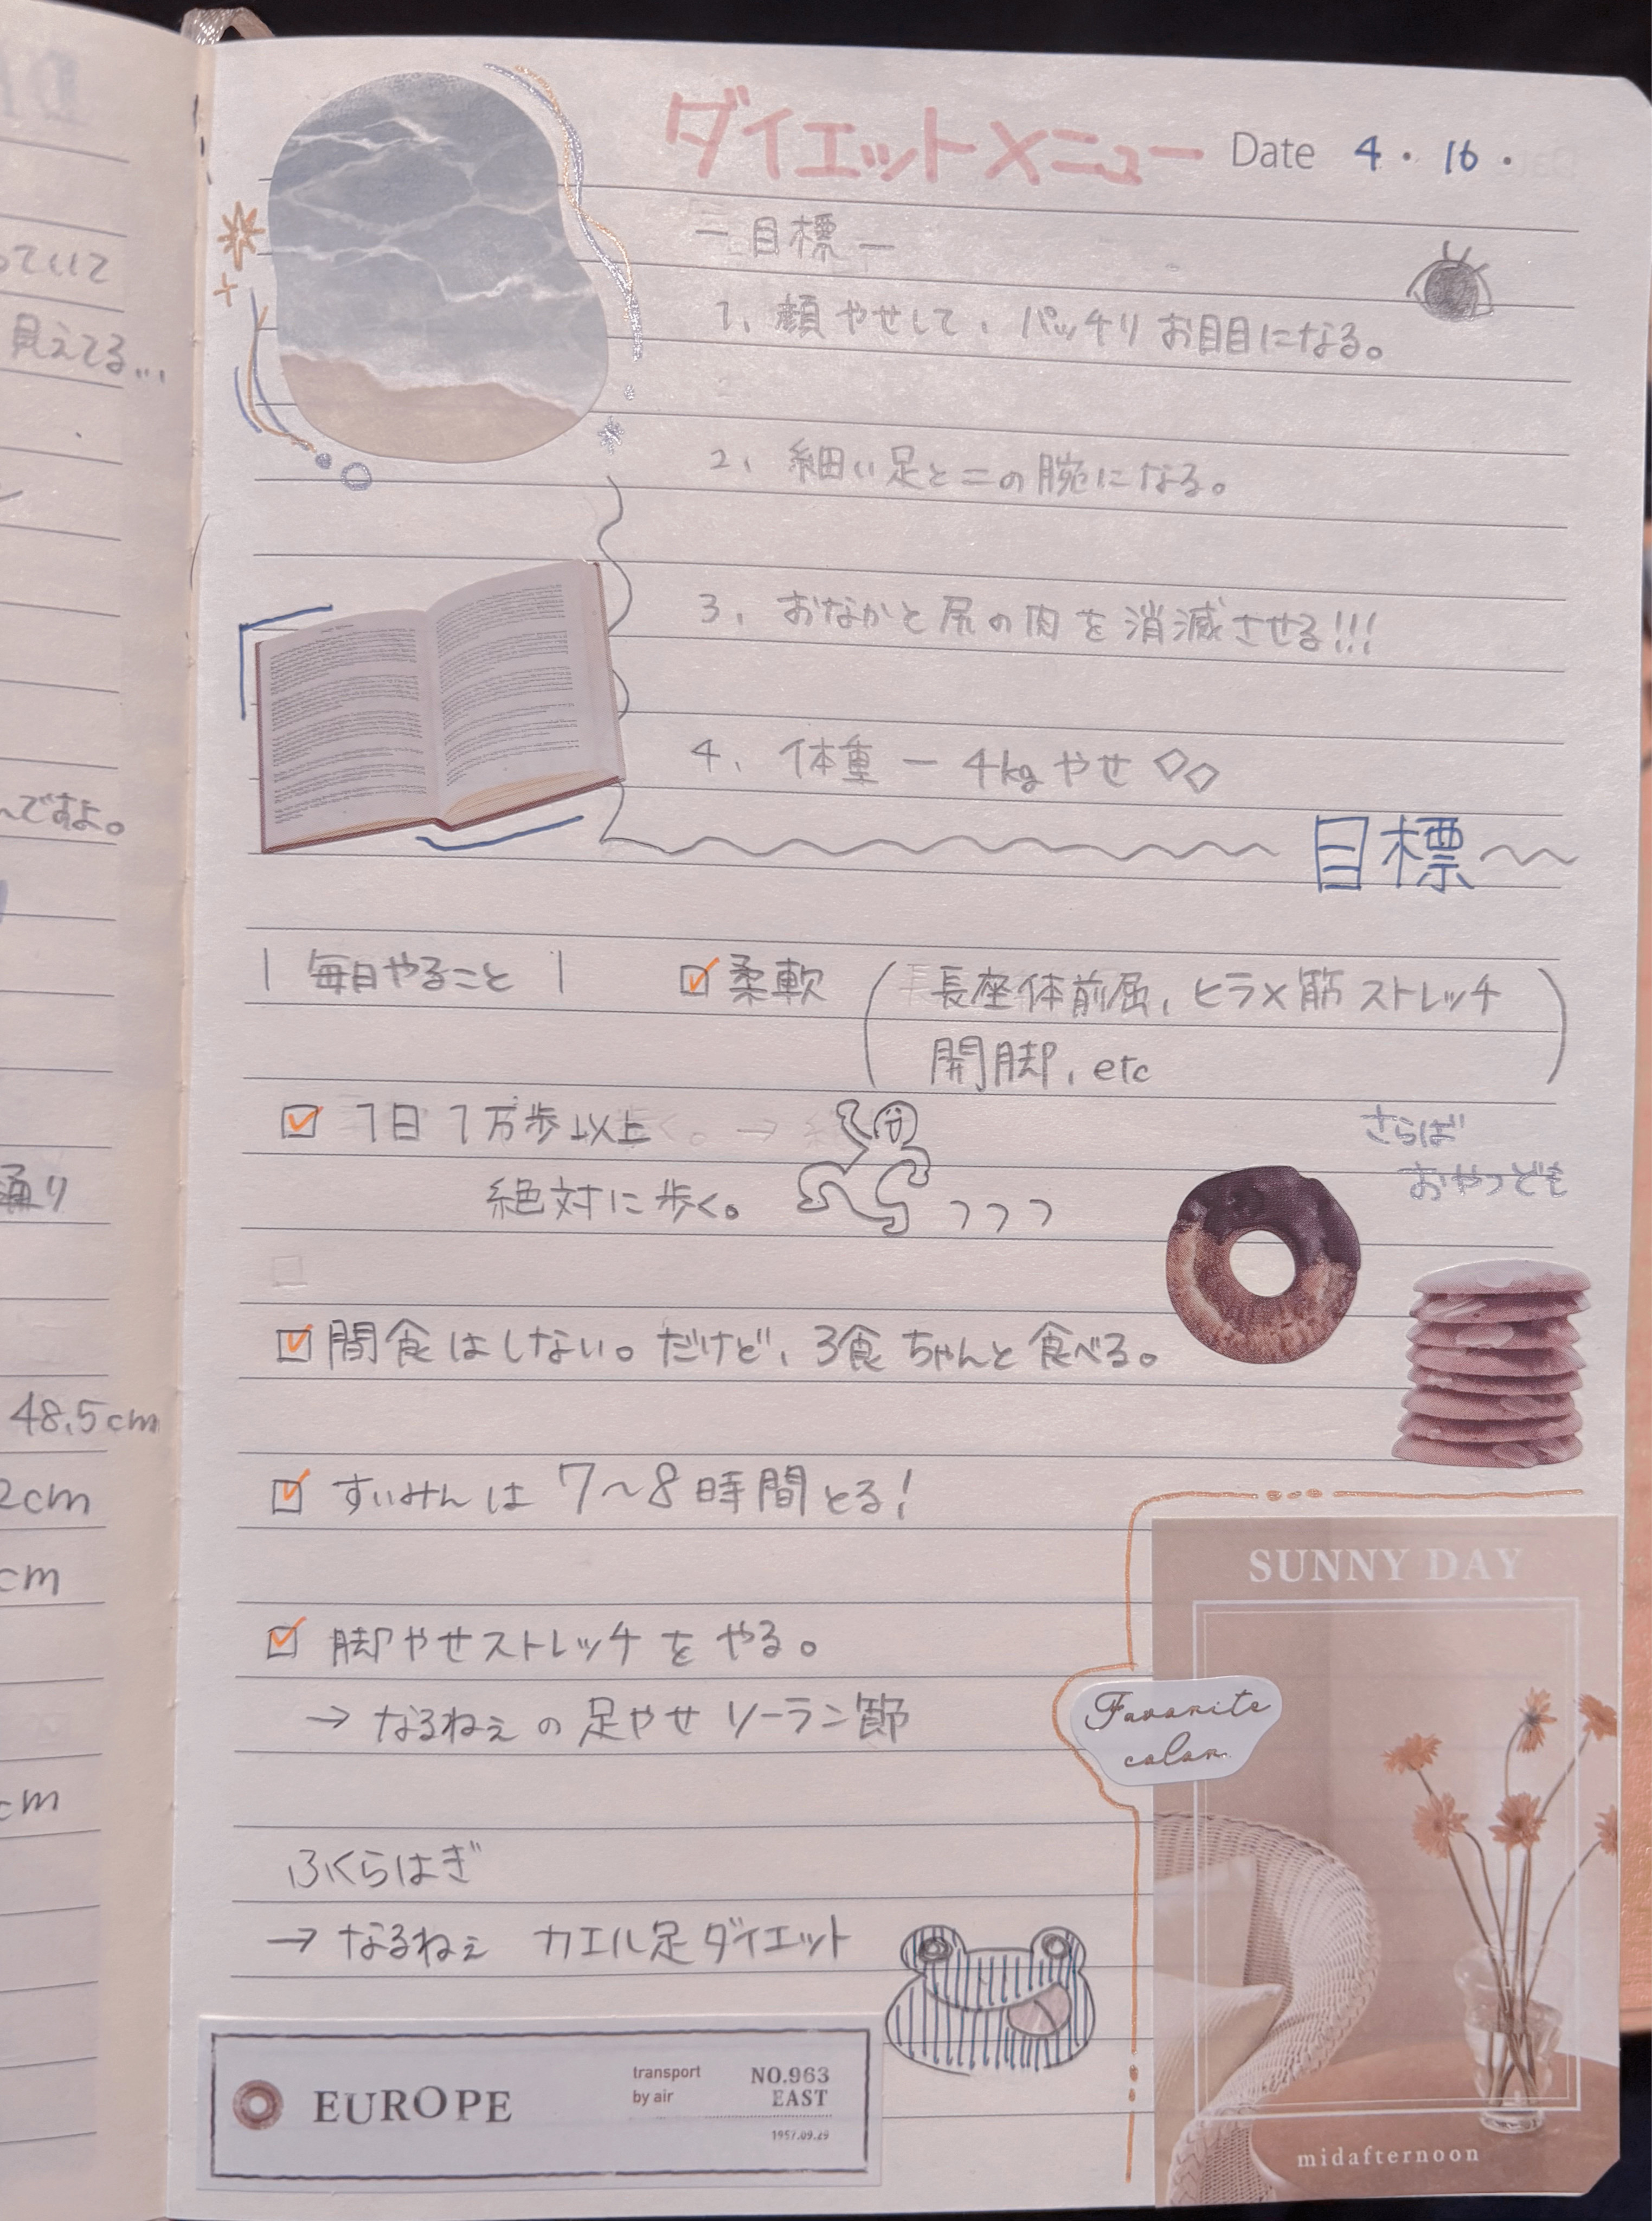 っていて
見えてる...
んですよ。
通り
48.5cm
2cm
cm
cm
ダイエットメニュー
Date 4・16・
ー目標ー
1、顔やせして、パッチリお目目になる。
2、細い足と二の腕になる。
3、おなかと尻の肉を消滅させる!!!
4、体重 − 4kgやせ
目標
| 毎日やること |
☑柔軟（長座体前屈、ヒラメ筋ストレッチ
開脚、etc）
☑ 1日1万歩以上
絶対に歩く。
さらば
おやつども
☑間食はしない。だけど、3食ちゃんと食べる。
☑ すいみんは7~8時間とる!
☑ 脚やせストレッチをやる。
→ なるねぇの足やせソーラン節
ふくらはぎ
→ なるねぇ カエル足ダイエット
SUNNY DAY
Favorite
color
midafternoon
EUROPE
transport
by air
NO.963
EAST
1957.09.29